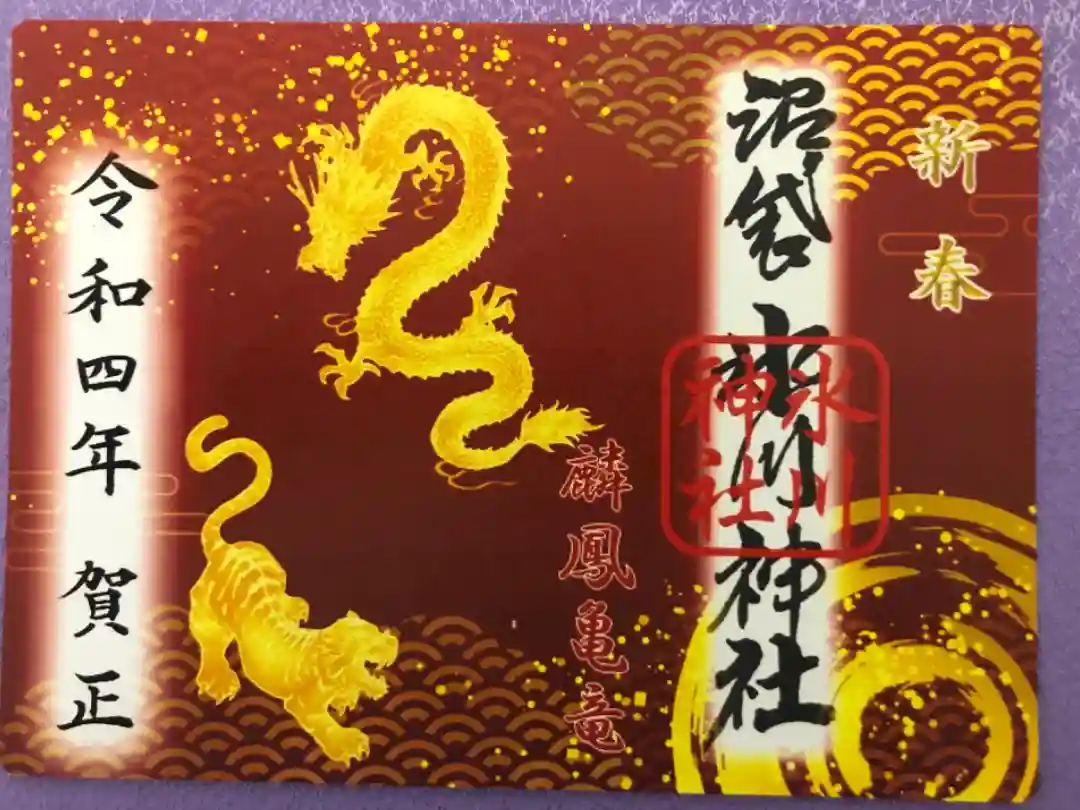 新春
沼袋氷川神社
氷川
神社
麟鳳亀竜
令和四年 賀正